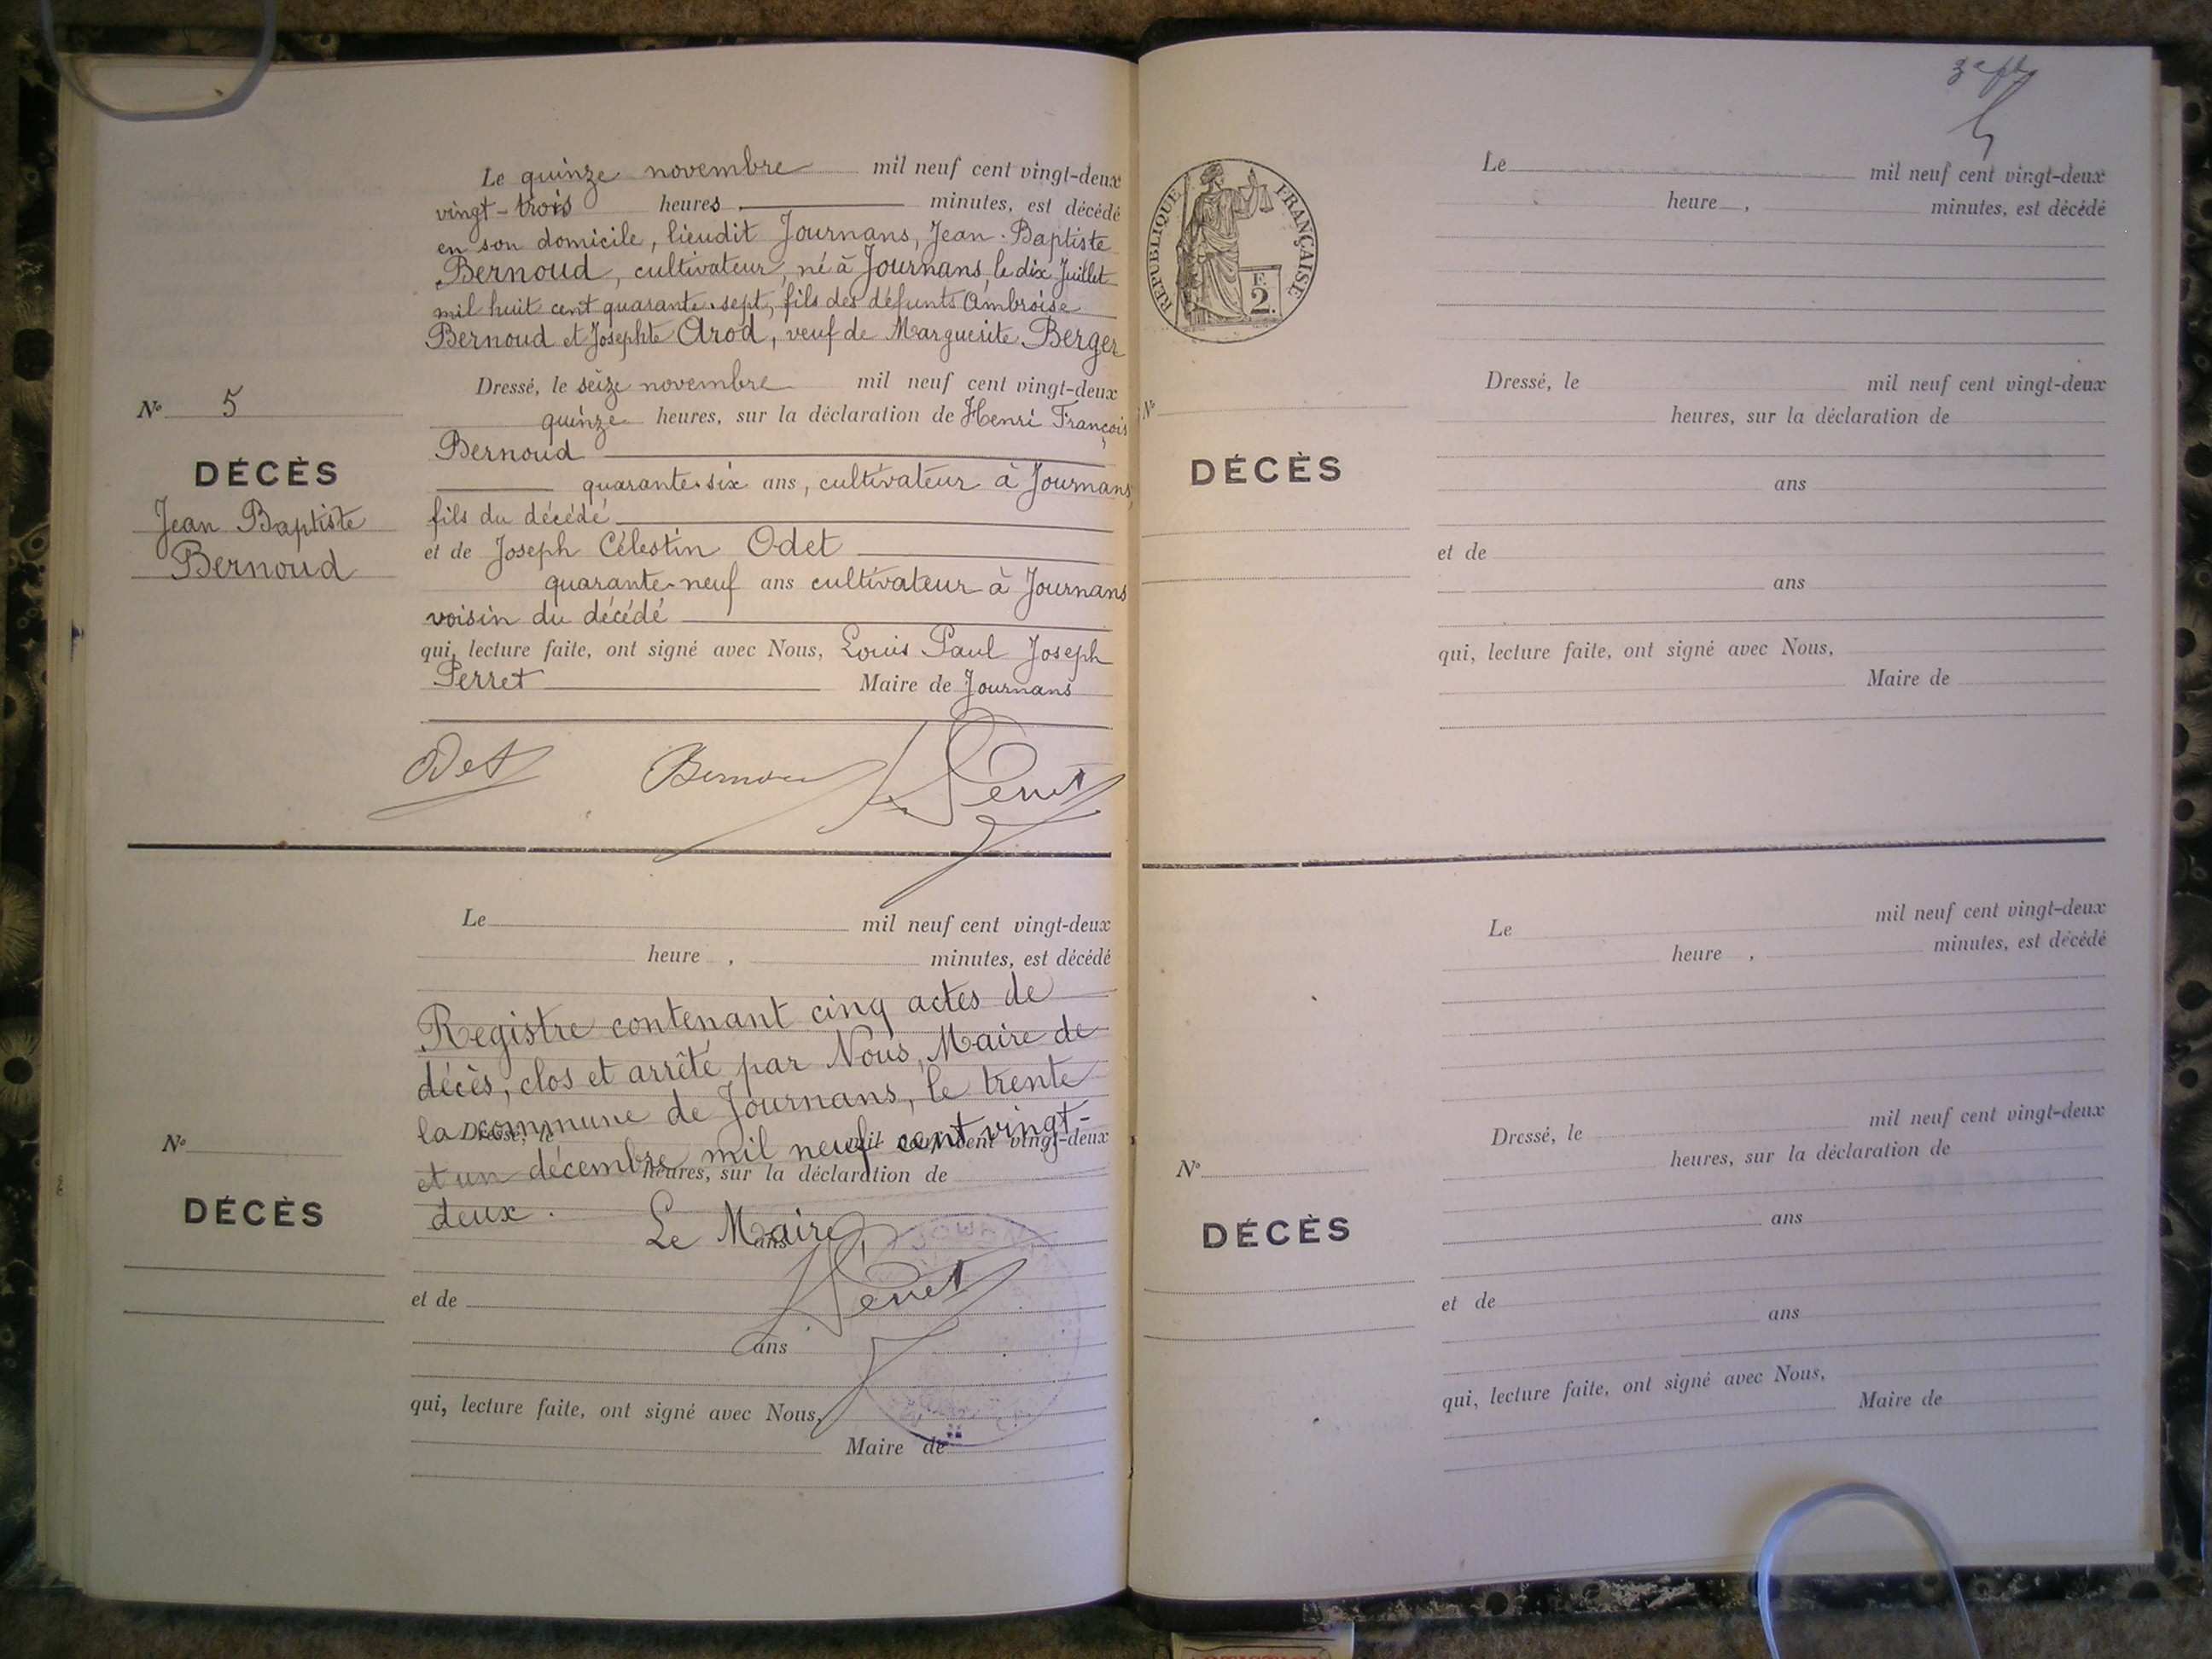 Le quinze novembre mil neuf cent vingt-deux
vingt-trois heures, minutes, est décédé
en son domicile, lieudit Journans, Jean-Baptiste
Bernoud, cultivateur, né à Journans, le dix Juillet
mil huit cent quarante-sept, fils des défunts Ambroise
Bernoud et Josephte Arod, veuf de Marguerite Berger
Dressé, le seize novembre mil neuf cent vingt-deux
quinze heures, sur la déclaration de Henri François
Bernoud
quarante-six ans, cultivateur à Journans,
fils du décédé
et de Joseph Célestin Odet
quarante-neuf ans cultivateur à Journans
voisin du décédé
qui, lecture faite, ont signé avec Nous, Louis Paul Joseph
Perret Maire de Journans
Nº 5
DÉCÈS
Jean Baptiste
Bernoud
Odet Bernoud Perret
Le mil neuf cent vingt-deux
heure , minutes, est décédé
Registre contenant cinq actes de
décès, clos et arrêté par Nous, Maire de
la commune de Journans, le trente
et un décembre mil neuf cent vingt-
deux.
Le Maire
Perret
Nº
DÉCÈS
Dressé, le mil neuf cent vingt-deux
heures, sur la déclaration de
ans
et de
ans
qui, lecture faite, ont signé avec Nous,
Maire de
RÉPUBLIQUE FRANÇAISE
F.
2.
Le mil neuf cent vingt-deux
heure , minutes, est décédé
Dressé, le mil neuf cent vingt-deux
Nº
heures, sur la déclaration de
DÉCÈS
ans
et de
ans
qui, lecture faite, ont signé avec Nous,
Maire de
Le mil neuf cent vingt-deux
heure , minutes, est décédé
Dressé, le mil neuf cent vingt-deux
heures, sur la déclaration de
Nº
DÉCÈS
ans
et de
ans
qui, lecture faite, ont signé avec Nous,
Maire de